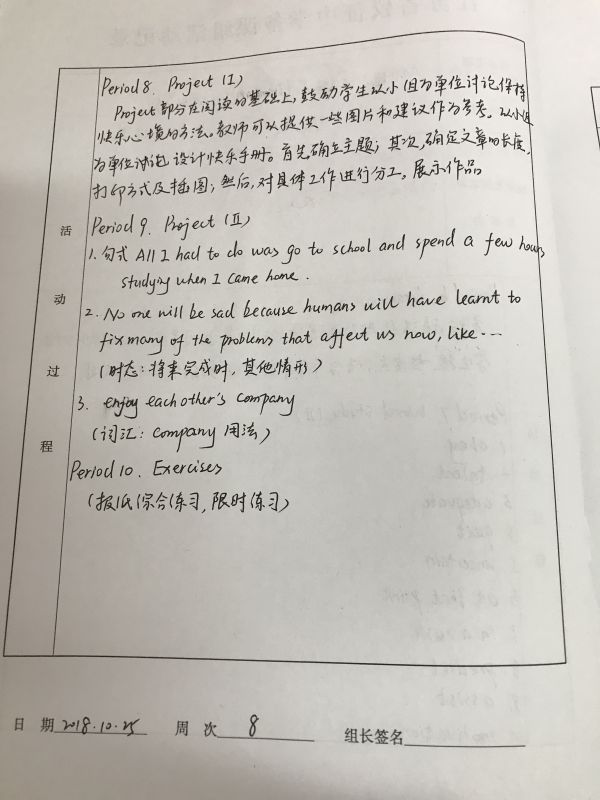 Period 8. Project (I)
Project部分在阅读的基础上,鼓励学生以小组为单位讨论保持
快乐心境的方法。教师可以提供一些图片和建议作为参考。以小组
为单位讨论,设计快乐手册。首先,确立主题;其次,确定文章的长度,
打印方式及插图;然后,对具体工作进行分工。展示作品
Period 9. Project (II)
1. 句式 All I had to do was go to school and spend a few hours
studying when I came home.
2. No one will be sad because humans will have learnt to
fix many of the problems that affect us now, like...
(时态:将来完成时,其他情形)
3. enjoy each other's company
(词汇:company 用法)
Period 10. Exercises
(报纸综合练习,限时练习)
活
动
过
程
日 期 2018.10.25 周 次 8 组长签名